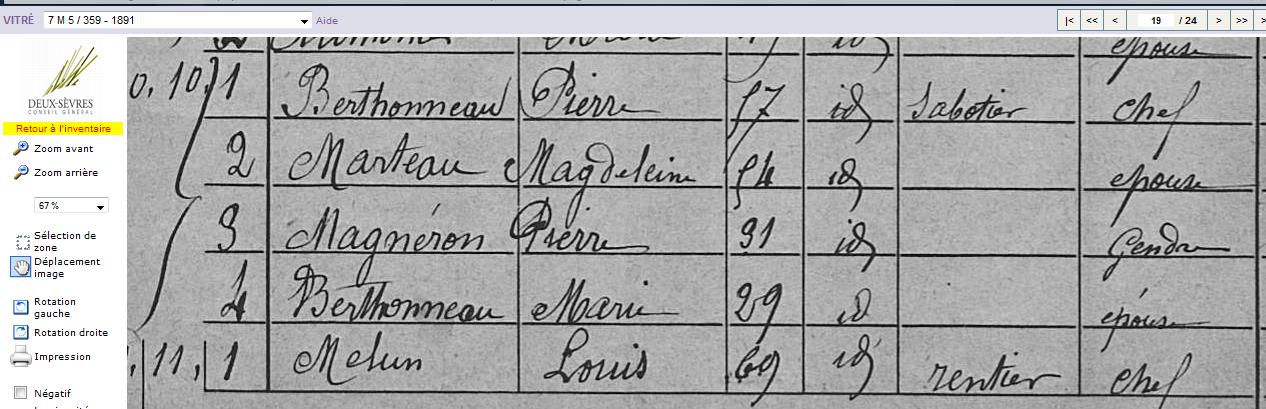 VITRÉ 7 M 5 / 359 - 1891 Aide |< << < 19 / 24 > >> >
épouse
DEUX-SÈVRES
CONSEIL GÉNÉRAL
Retour à l'inventaire
Zoom avant
Zoom arrière
67 %
Sélection de
zone
Déplacement
image
Rotation
gauche
Rotation droite
Impression
Négatif
0, 10, 1 Berthonneau Pierre 57 id Sabotier chef
2 Marteau Magdeleine 54 id épouse
3 Magnéron Pierre 31 id Gendre
4 Berthonneau Marie 29 id épouse
11, 1 Melun Louis 69 id rentier chef